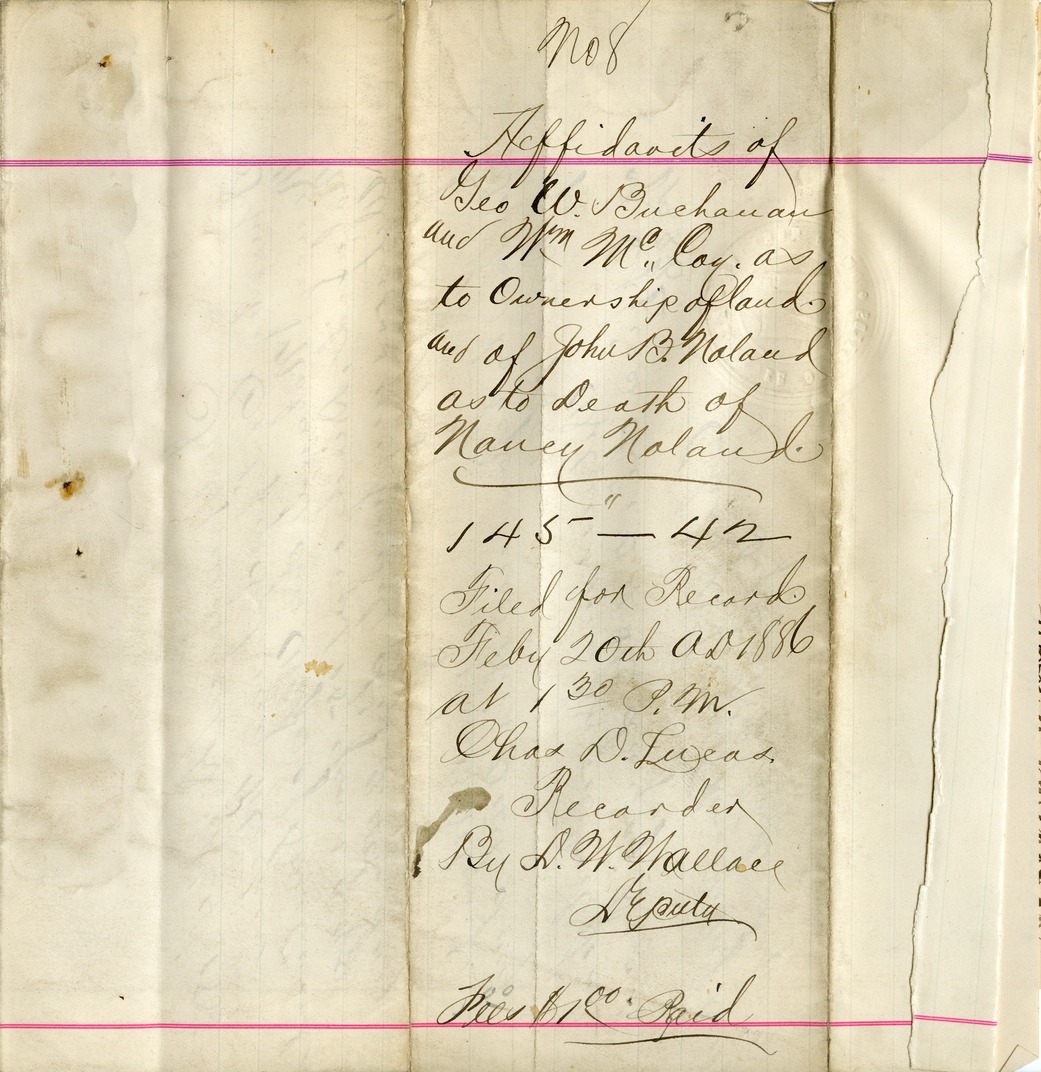 No 8
Affidavits of
Geo W. Buchanan
and Wm Mc,, Coy. as
to Ownership of land.
and of John B. Noland
as to Death of
Nancy Noland.
"
145 — 42
Filed for Record
Feby 20th A D 1886
at 1 30 P.M.
Chas D. Lucas
Recorder
By D. W. Wallace
Deputy
Fees $1 00. Paid